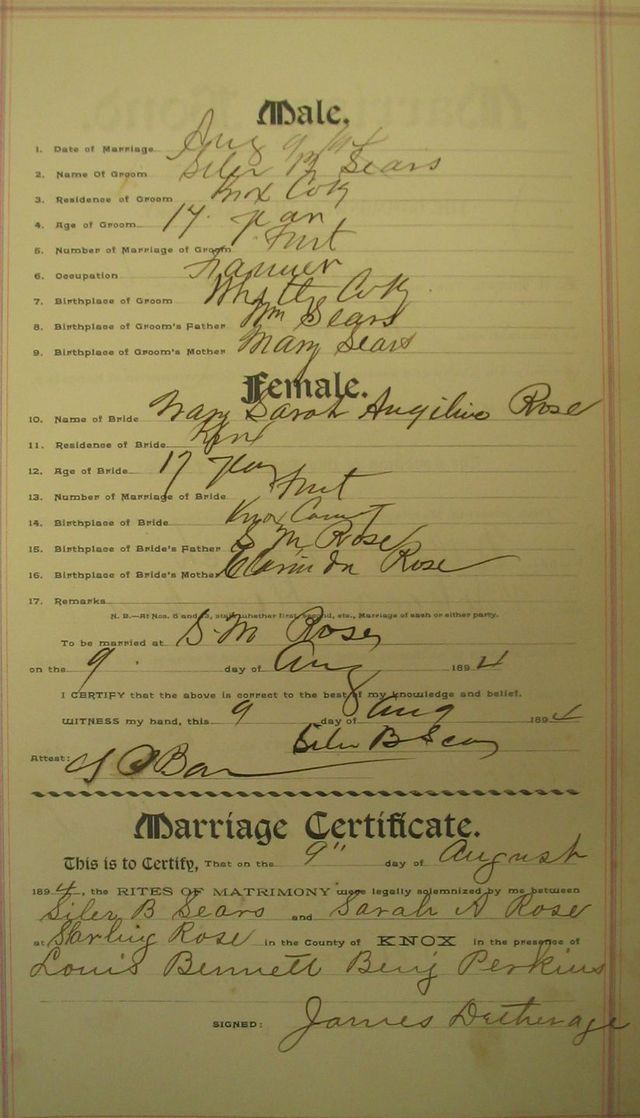 Male.
1. Date of Marriage Aug 9 94
2. Name Of Groom Siler B Sears
3. Residence of Groom Knox Co Ky
4. Age of Groom 17 years
5. Number of Marriage of Groom First
6. Occupation Farmer
7. Birthplace of Groom Co Ky
8. Birthplace of Groom's Father Wm Sears
9. Birthplace of Groom's Mother Mary Sears
Female.
10. Name of Bride Mary Sarah Angiline Rose
11. Residence of Bride Knox
12. Age of Bride 17 years
13. Number of Marriage of Bride First
14. Birthplace of Bride Knox County
15. Birthplace of Bride's Father S M Rose
16. Birthplace of Bride's Mother Clarinda Rose
17. Remarks
N. B.—At Nos. 5 and 13, state whether first, second, etc., Marriage of each or either party.
To be married at S. M Roses
on the 9 day of Aug 1894
I CERTIFY that the above is correct to the best of my knowledge and belief.
WITNESS my hand, this 9 day of Aug 1894
Siler B Sears
Attest:
Marriage Certificate.
This is to Certify, That on the 9" day of August
1894, the RITES OF MATRIMONY were legally solemnized by me between
Siler B Sears and Sarah A Rose
at Starling Rose in the County of KNOX in the presence of
Louis Bennett Benj Perkins
SIGNED: James Detherage